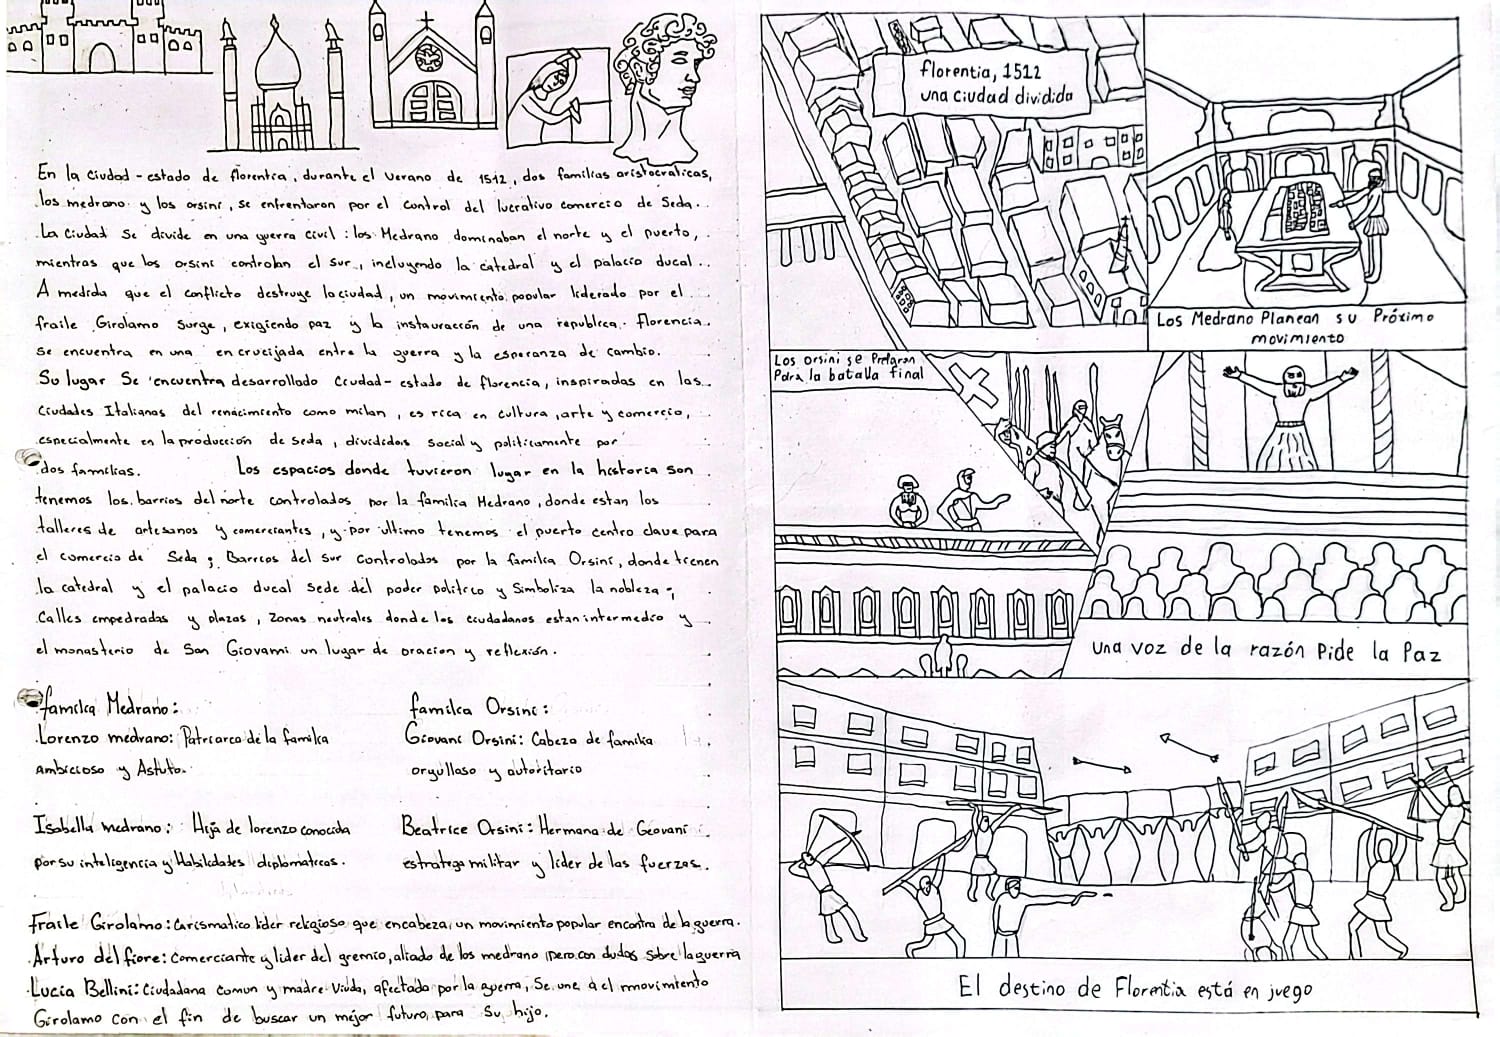 En la Ciudad - estado de florentia, durante el verano de 1512, dos familias aristocraticas,
los medrano y los orsini, se enfrentaron por el control del lucrativo comercio de Seda.
La Ciudad Se divide en una guerra civil: los Medrano dominaban el norte y el puerto,
mientras que los orsini controlan el sur, incluyendo la catedral y el palacio ducal.
A medida que el conflicto destruye la ciudad, un movimiento popular liderado por el
fraile Girolamo surge, exigiendo paz y la instauración de una republica. florencia
se encuentra en una en crucijada entre la guerra y la esperanza de cambio.
Su lugar Se encuentra desarrollado Ciudad - estado de florencia, inspiradas en las
Ciudades Italianas del renacimiento como milan, es rica en cultura, arte y comercio,
especialmente en la producción de seda, divididas social y politicamente por
dos familias. Los espacios donde tuvieron lugar en la historia son
tenemos los barrios del norte controlados por la familia Medrano, donde estan los
talleres de artesanos y comerciantes, y por ultimo tenemos el puerto centro clave para
el comercio de Seda; Barrios del sur controlados por la familia Orsini, donde tienen
la catedral y el palacio ducal sede del poder politico y Simboliza la nobleza;
Calles empedradas y plazas, zonas neutrales donde los ciudadanos estan intermedio y
el monasterio de San Giovami un lugar de oracion y reflexión.
familia Medrano:
Lorenzo medrano: Patriarca de la familia
Ambicioso y Astuto.
Isabella medrano: Hija de lorenzo conocida
por su inteligencia y Habilidades diplomaticas.
familia Orsini:
Giovani Orsini: Cabeza de familia
orgullaso y autoritario
Beatrice Orsini: Hermana de Geovani
estratega militar y lider de las fuerzas.
Fraile Girolamo: Carismatico lider religioso que encabeza un movimiento popular encontra de la guerra.
Arturo del fiore: Comerciante y lider del gremio, aliado de los medrano pero con dudas sobre la guerra
Lucia Bellini: Ciudadana comun y madre viuda, afectada por la guerra, Se une a el movimiento
Girolamo con el fin de buscar un mejor futuro para su hijo.
florentia, 1512
una ciudad dividida
Los Medrano Planean su Próximo
movimiento
Los orsini se Preparan
Para la batalla final
una voz de la razón Pide la Paz
El destino de Florentia está en juego